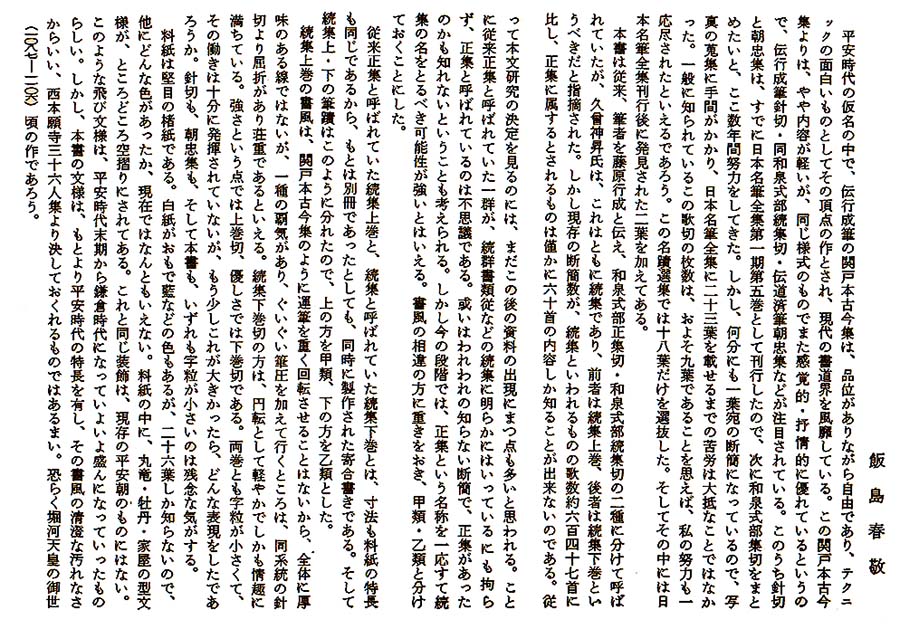 飯島春敬
平安時代の仮名の中で、伝行成筆の関戸本古今集は、品位がありながら自由であり、テクニ
ックの面白いものとしてその頂点の作とされ、現代の書道界を風靡している。この関戸本古今
集よりは、やや内容が軽いが、同じ様式のものでまた感覚的・抒情的に優れているというの
で、伝行成筆針切・同和泉式部続集切・伝道済筆朝忠集などが注目されている。このうち針切
と朝忠集は、すでに日本名筆全集第一期第五巻として刊行したので、次に和泉式部集切をまと
めたいと、ここ数年間努力をしてきた。しかし、何分にも一葉宛の断簡になっているので、写
真の蒐集に手間がかかり、日本名筆全集に二十三葉を載せるまでの苦労は大抵なことではなか
った。一般に知られているこの歌切の枚数は、およそ九葉であることを思えば、私の努力も一
応尽されたといえるであろう。この名蹟選集では十八葉だけを選抜した。そしてその中には日
本名筆全集刊行後に発見された二葉を加えてある。
本書は従来、筆者を藤原行成と伝え、和泉式部正集切・和泉式部続集切の二種に分けて呼ば
れていたが、久曾神昇氏は、これはともに続集であり、前者は続集上巻、後者は続集下巻とい
うべきだと指摘された。しかし現存の断簡数が、続集といわれるものの歌数約六百四十七首に
比し、正集に属するとされるものは僅かに六十首の内容しか知ることが出来ないのである。従
って本文研究の決定を見るのには、まだこの後の資料の出現にまつ点も多いと思われる。こと
に従来正集と呼ばれていた一群が、続群書類従などの続集に明らかにはいっているにも拘ら
ず、正集と呼ばれているのは不思議である。或いはわれわれの知らない断簡で、正集があった
のかも知れないということも考えられる。しかし今の段階では、正集という名称を一応すて続
集の名をとるべき可能性が強いとはいえる。書風の相違の方に重きをおき、甲類・乙類と分け
ておくことにした。
従来正集と呼ばれていた続集上巻と、続集と呼ばれていた続集下巻とは、寸法も料紙の特長
も同じであるから、もとは別冊であったとしても、同時に製作された寄合書きである。そして
続集上・下の筆蹟はこのように分れたので、上の方を甲類、下の方を乙類とした。
続集上巻の書風は、関戸本古今集のように運筆を重く回転させることはないから、全体に厚
味のある線ではないが、一種の覇気があり、ぐいぐい筆圧を加えて行くところは、同系統の針
切より屈折があり荘重であるといえる。続集下巻切の方は、円転として軽やかでしかも情趣に
満ちている。強さという点では上巻切、優しさでは下巻切である。両巻とも字粒が小さくて、
その働きは十分に発揮されていないが、もう少しこれが大きかったら、どんな表現をしたであ
ろうか。針切も、朝忠集も、そして本書も、いずれも字粒が小さいのは残念な気がする。
料紙は堅目の楮紙である。白紙がおもで藍などの色もあるが、二十六葉しか知らないので、
他にどんな色があったか、現在ではなんともいえない。料紙の中に、丸竜・牡丹・家屋の型文
様が、ところどころ空摺りにされてある。これと同じ装飾は、現存の平安朝のものにはない。
このような飛び文様は、平安時代末期から鎌倉時代になっていよいよ盛んになっていったもの
らしい。しかし、本書の文様は、もとより平安時代の特長を有し、その書風の清澄な汚れなさ
からいい、西本願寺三十六人集より決しておくれるものではあるまい。恐らく堀河天皇の御世
（一〇八七―一一〇六）頃の作であろう。